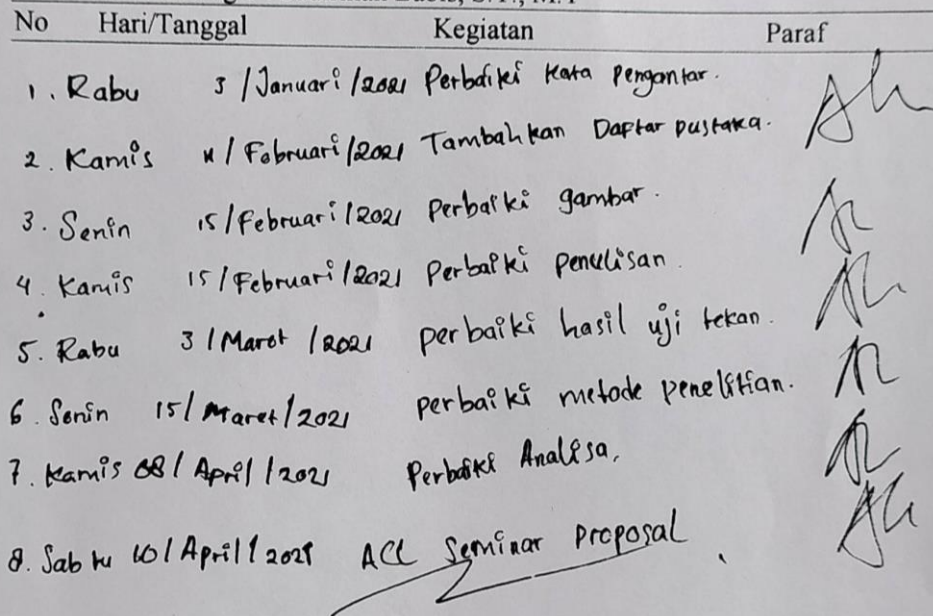 No Hari/Tanggal Kegiatan Paraf
1. Rabu 3 / Januari / 2021 Perbaiki Kata Pengantar.
2. Kamis 11 / Februari / 2021 Tambahkan Daftar Pustaka.
3. Senin 15 / Februari / 2021 Perbaiki gambar.
4. Kamis 15 / Februari / 2021 Perbaiki penulisan.
5. Rabu 3 / Maret / 2021 perbaiki hasil uji tekan.
6. Senin 15 / Maret / 2021 perbaiki metode penelitian.
7. Kamis 08 / April / 2021 Perbaiki Analisa,
8. Sabtu 10 / April / 2021 ACC Seminar Proposal